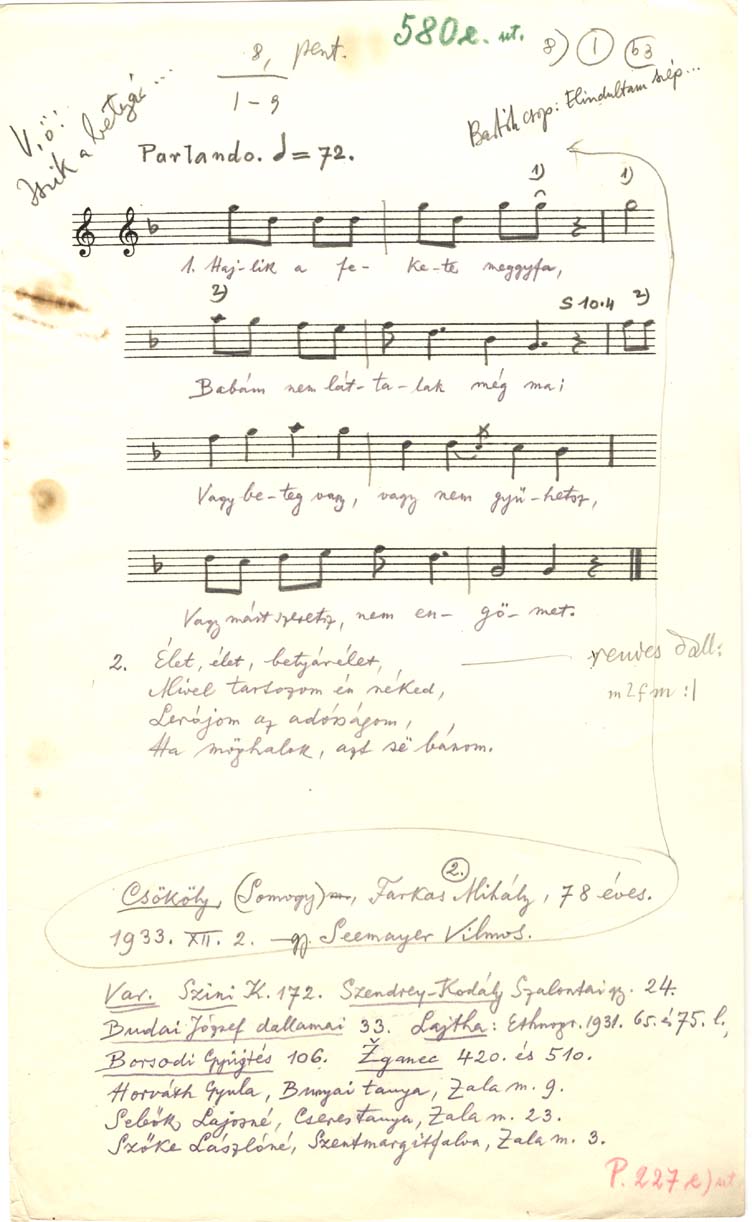 580e. ut.
8, pent.
8) 1 b3
1-9
V.ö!
Iszik a betyár ...
Bartók csop: Elindultam szép...
Parlando. = 72.
1)
1)
1. Haj-lik a fe- ke-te meggyfa,
2)
S 10.4
2)
Babám nem lát-ta-lak még ma;
Vagy be-teg vagy, vagy nem gyü-hetsz,
Vagy mást szeretsz, nem en- gö- met.
2. Élet, élet, betyárélet,
rendes dall:
Mivel tartozom én néked,
m2fm :|
Lerójom az adósságom,
Ha möghalok, azt së bánom.
2.
Csököly, (Somogy) Farkas Mihály, 78 éves.
1933. XII. 2. gy. Seemayer Vilmos.
Var. Szini K. 172. Szendrey-Kodály Szalontai gy. 24.
Budai József dallamai 33. Lajtha: Ethnogr. 1931. 65. és 75. l.,
Borsodi Gyüjtés 106. Žganec 420. és 510.
Horváth Gyula, Bunyai tanya, Zala m. 9.
Sebők Lajosné, Cseres tanya, Zala m. 23.
Szőke Lászlóné, Szentmargitfalva, Zala m. 3.
P. 227e) ut